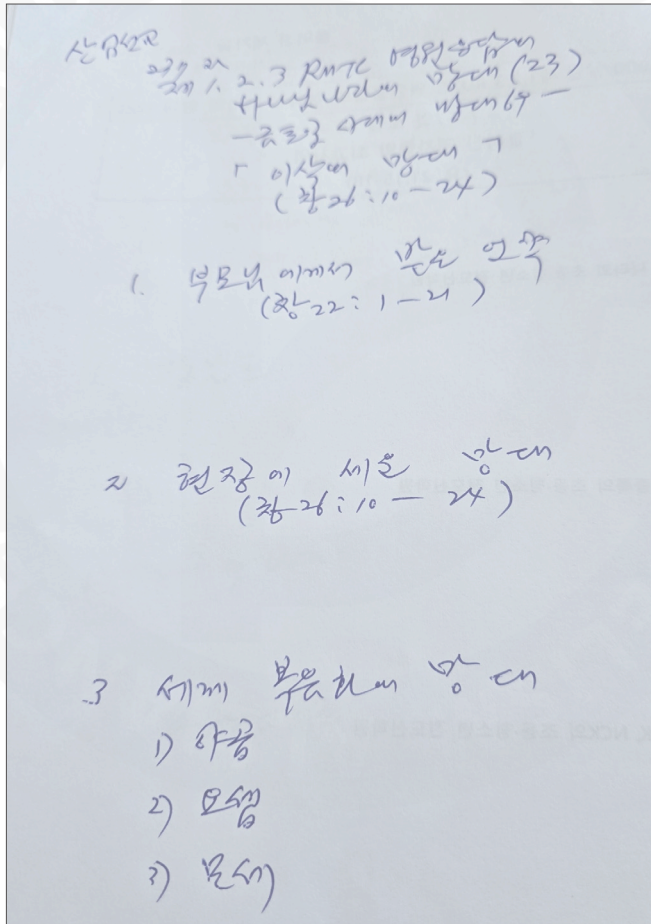 산업선교
제1, 2, 3 RUTC 영원응답의
하나님나라의 망대 (23)
- 금토일 시대의 망대 69 -
「이삭의 망대」
(창26:10-24)
1. 부모님에게서 받은 언약
(창22:1-21)
2 현장에 세운 망대
(창26:10-24)
3 세계 복음화의 망대
1) 야곱
2) 요셉
3) 모세